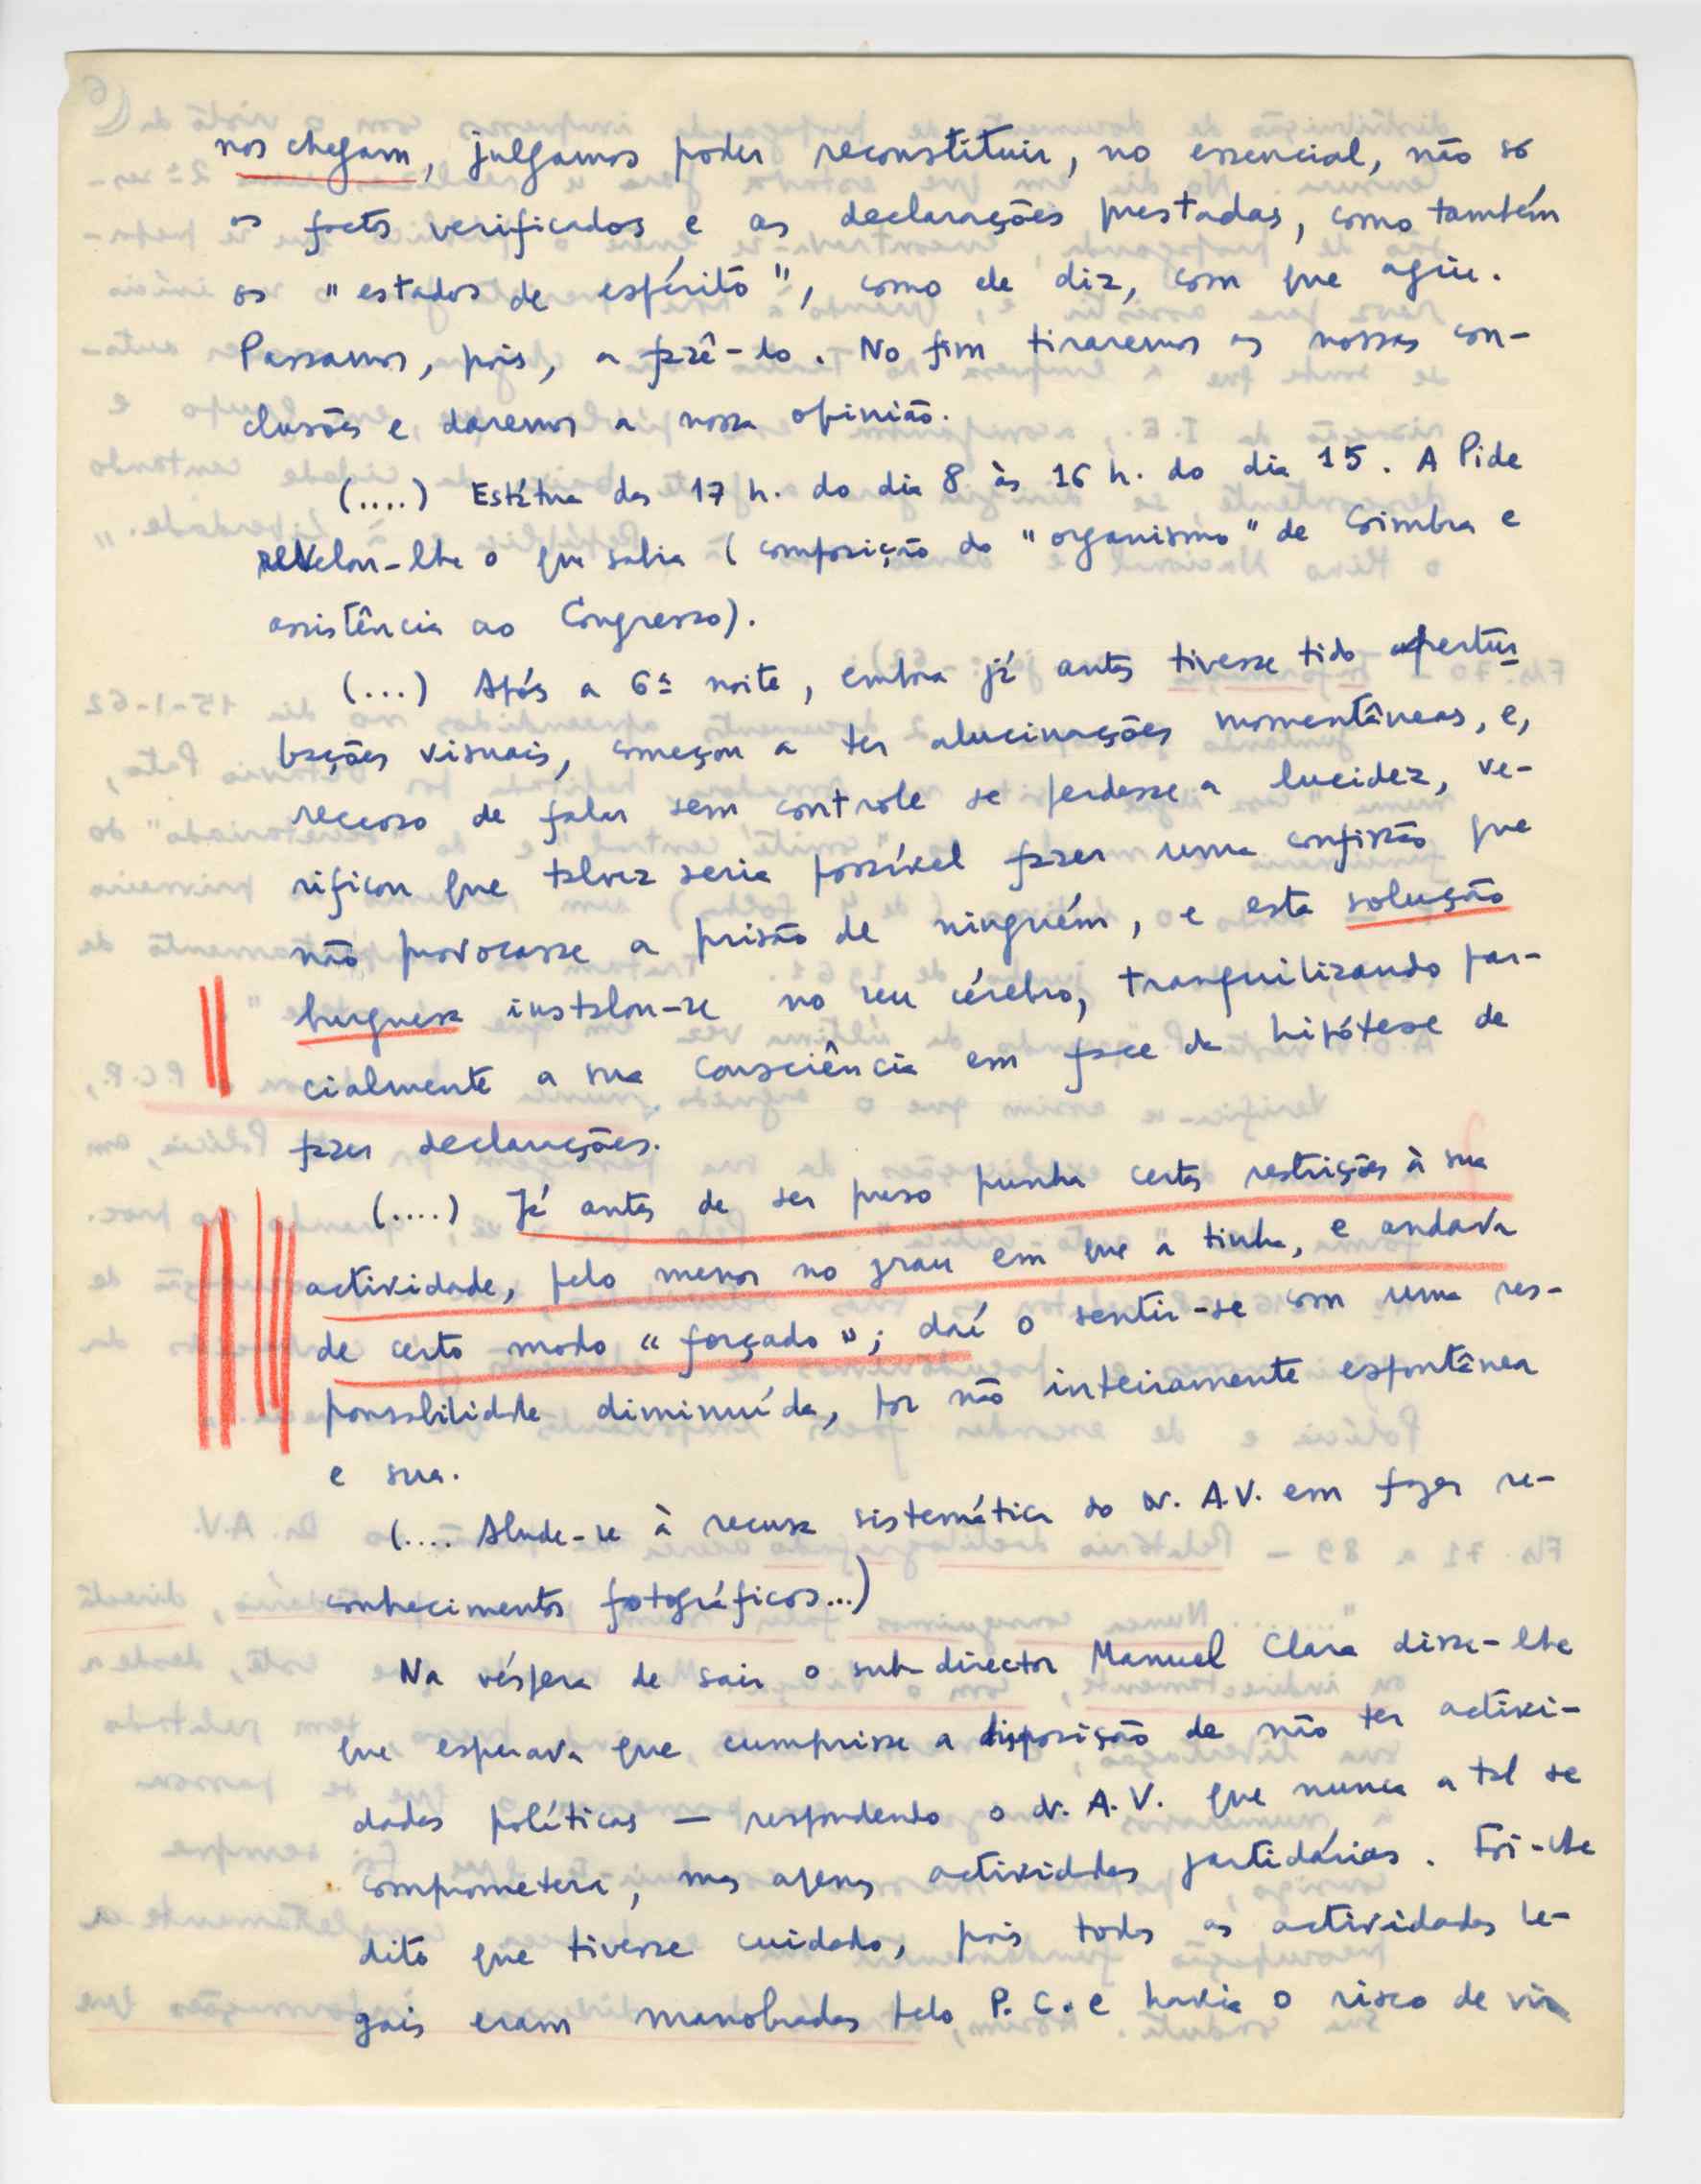 nos chegam, julgamos poder reconstituir, no essencial, não só
os factos verificados e as declarações prestadas, como também
os "estados de espírito", como ele diz, com que agiu.
Passamos, pois, a fazê-lo. No fim tiraremos as nossas con-
clusões e daremos a nossa opinião.
(....) Estátua das 17 h. do dia 8 às 16 h. do dia 15. A Pide
revelou-lhe o que sabia (composição do "organismo" de Coimbra e
assistência ao Congresso).
(...) Após a 6ª noite, embora já antes tivesse tido pertur
bações visuais, começou a ter alucinações momentâneas, e,
receoso de falar sem controle se perdesse a lucidez, ve-
rificou que talvez seria possível fazer uma confissão que
não provocasse a prisão de ninguém, e esta solução
burguesa instalou-se no seu cérebro, tranquilizando par-
cialmente a sua consciência em face da hipótese de
fazer declarações.
(....) Já antes de ser preso punha certas restrições à sua
actividade, pelo menos no grau em que a tinha, e andava
de certo modo "forçado"; daí o sentir-se com uma res-
ponsabilidade diminuída, por não inteiramente espontânea
e sua.
(.... Alude-se à recusa sistemática do Dr. A.V. em fazer re-
conhecimentos fotográficos...)
Na véspera de sair o sub-director Manuel Clara disse-lhe
que esperava que cumprisse a disposição de não ter activi-
dades políticas — respondendo o dr. A.V. que nunca a tal se
comprometera, mas apenas actividades partidárias. Foi-lhe
dito que tivesse cuidado, pois todas as actividades le-
gais eram manobradas pelo P.C. e havia o risco de vir